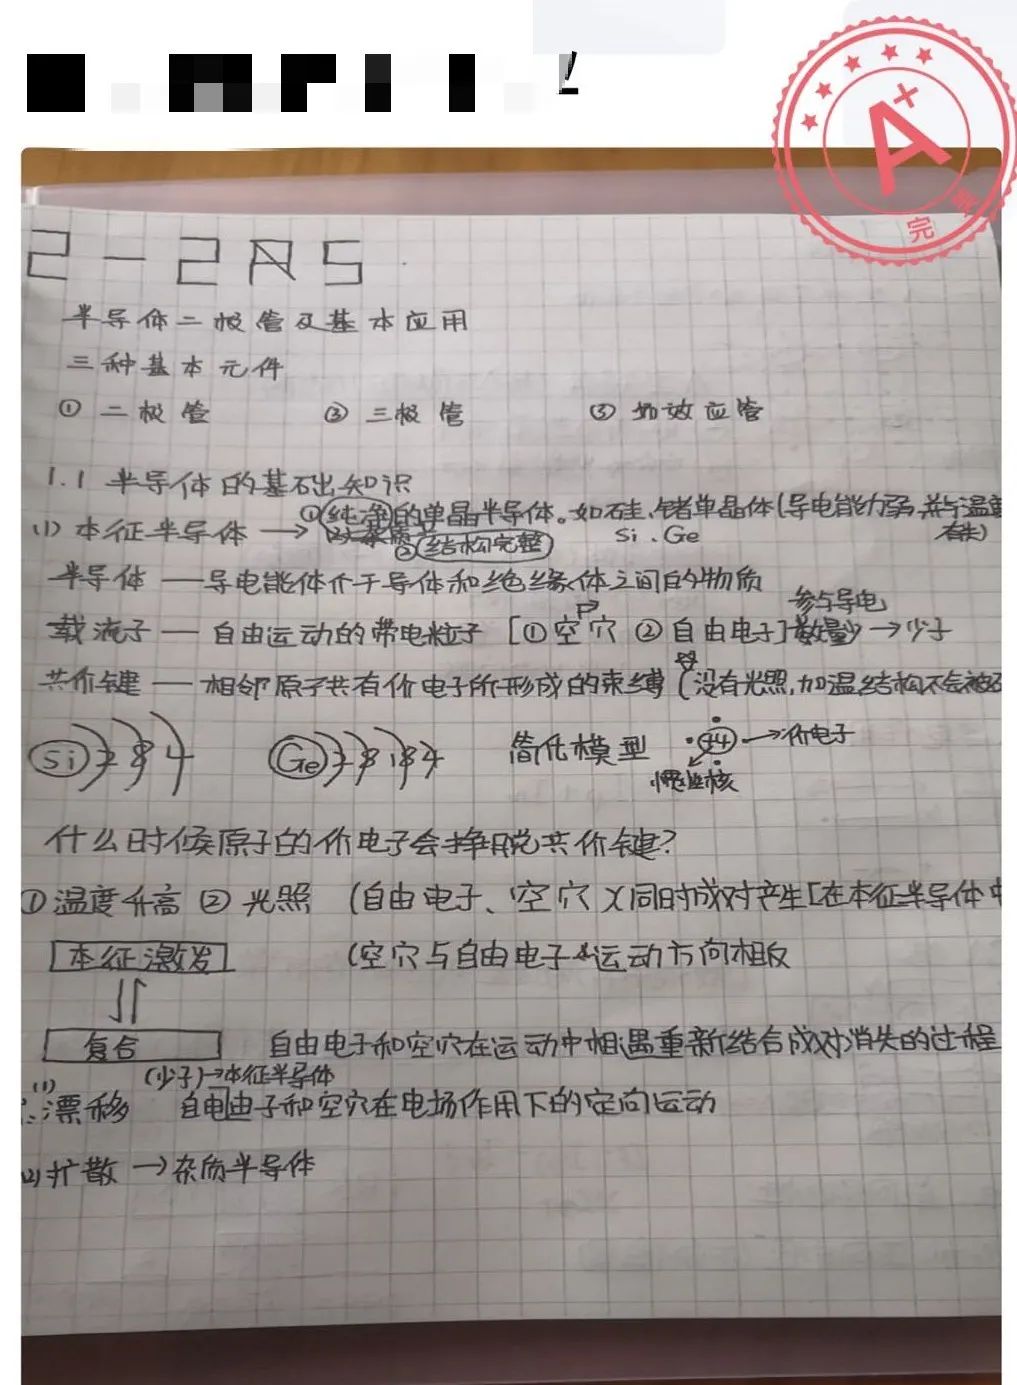 A+
完美
2-2A5
半导体二极管及基本应用
三种基本元件
① 二极管 ② 三极管 ③ 场效应管
1.1 半导体的基础知识
①纯净的单晶半导体。如硅、锗单晶体(导电能力弱,并与温度有关)
(1) 本征半导体 → ②结构完整 Si、Ge
半导体——导电能体介于导体和绝缘体之间的物质
载流子——自由运动的带电粒子 [①空穴 ②自由电子] 参与导电 数量少→少子
共价键——相邻原子共有价电子所形成的束缚 (没有光照,加温结构不会被
Si 2 8 4 Ge 2 8 18 4 简化模型 +4 →价电子
惯性核
什么时候原子的价电子会挣脱共价键?
①温度升高 ②光照 (自由电子、空穴)(同时成对产生[在本征半导体中
本征激发 (空穴与自由电子运动方向相反
复合 自由电子和空穴在运动中相遇重新结合成对消失的过程
(1) (少子)→本征半导体
漂移 自电由子和空穴在电场作用下的定向运动
(2)扩散 →杂质半导体